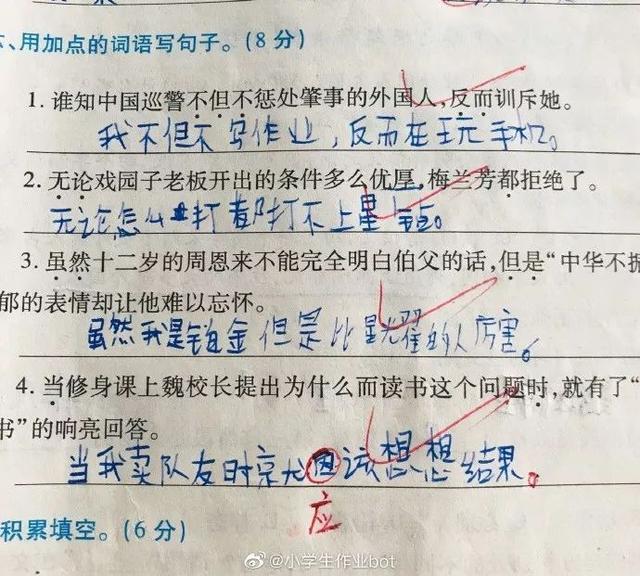 、用加点的词语写句子。(8 分)
1. 谁知中国巡警不但不惩处肇事的外国人,反而训斥她。
我不但不写作业,反而在玩手机。
2. 无论戏园子老板开出的条件多么优厚,梅兰芳都拒绝了。
无论怎么打都打不上星钻。
3. 虽然十二岁的周恩来不能完全明白伯父的话,但是“中华不振
郁的表情却让他难以忘怀。
虽然我是铂金但是比星耀的人厉害。
4. 当修身课上魏校长提出为什么而读书这个问题时,就有了“
书”的响亮回答。
当我卖队友时就该想想结果。
应
积累填空。(6 分)
@小学生作业bot